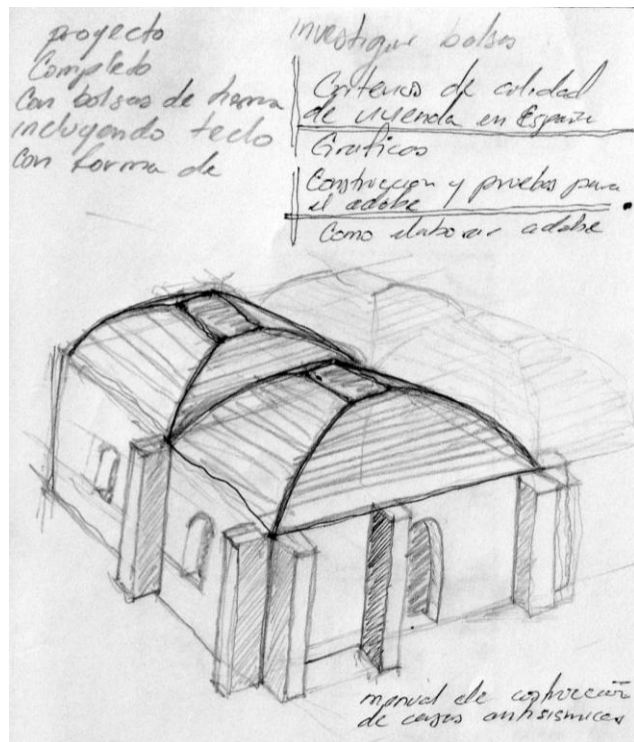 proyecto
Completo
Con bolsas de tierra
incluyendo techo
Con forma de
investigue bolsas
Criterios de calidad
de vivienda en España
Graficos
Construccion y pruebas para
el adobe
Como elaborar adobe
manual de construcción
de casas antisismicas